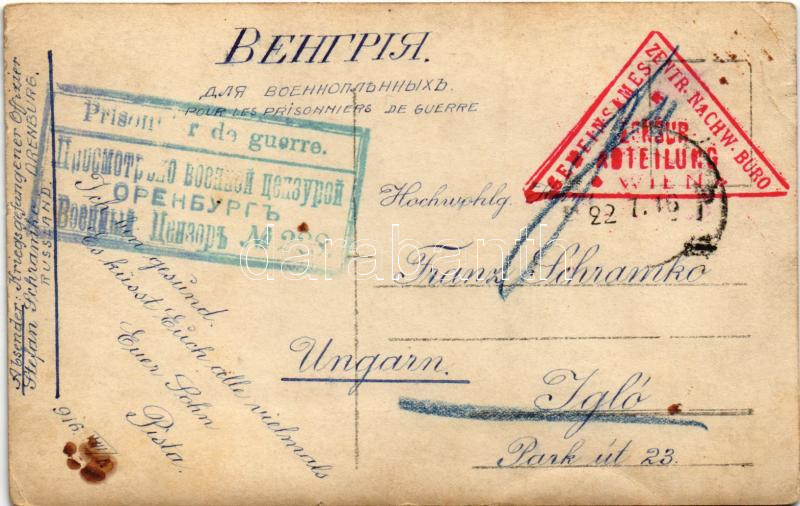 ВЕНГРІЯ.
ДЛЯ ВОЕННОПЛѢННЫХЪ.
POUR LES PRISONNIERS DE GUERRE
Prisonnier de guerre.
Просмотрѣно военной цензурой
ОРЕНБУРГЪ
Военный Цензоръ №
GEMEINSAMES ZENTR. NACHW. BÜRO
ZENSUR
ABTEILUNG
WIEN
22
Hochwohlg.
Franz Schramko
Ungarn.
Igló
Park út 23.
Absender: Kriegsgefangener Offizier
Stefan Schramko. ORENBURG.
RUSSLAND.
Ich bin gesund.
Es küsst Euch alle vielmals
Euer Sohn
Pista.
916.
darabanth